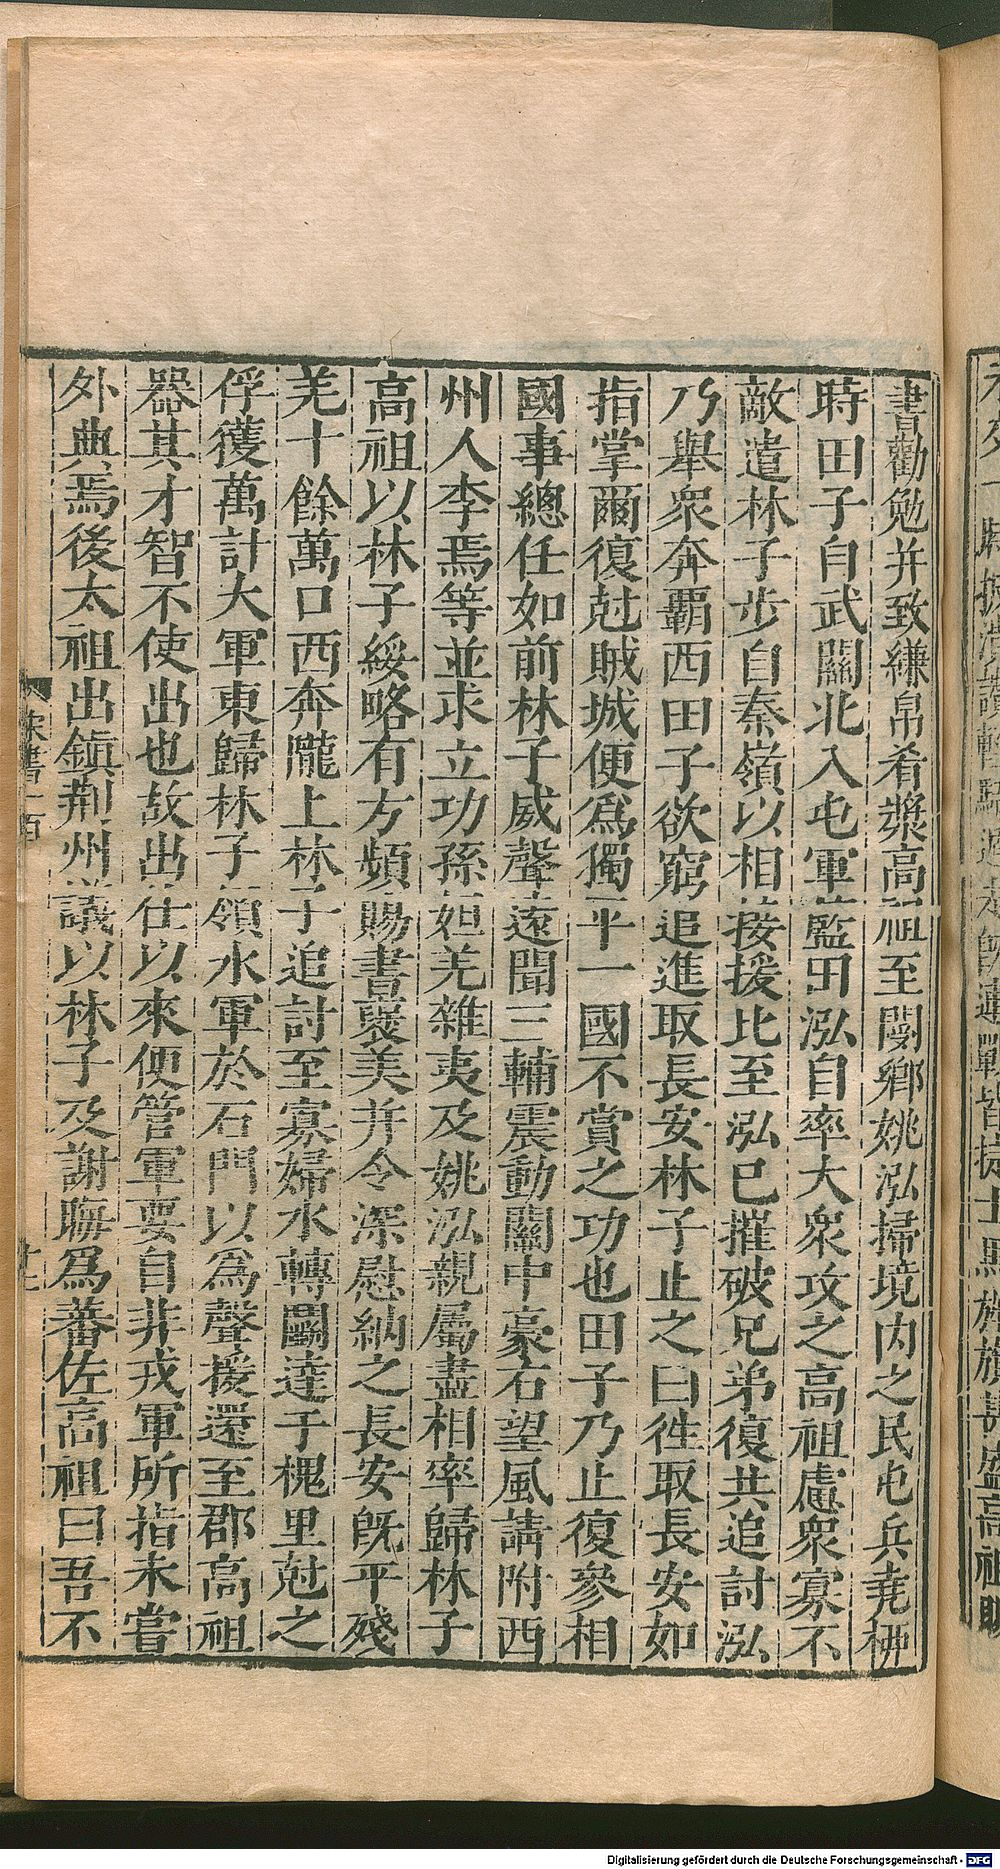 書勸勉并致縑帛肴漿高祖至閿鄉姚泓掃境内之民屯兵堯栁
時田子自武關北入屯軍藍田泓自率大衆攻之高祖慮衆寡不
敵遣林子步自秦嶺以相接援比至泓已摧破兄弟復共追討泓
乃舉衆奔覇西田子欲窮追進取長安林子止之曰徃取長安如
指掌爾復尅賊城便爲獨平一國不賞之功也田子乃止復參相
國事總任如前林子威聲遠聞三輔震動關中豪右望風請附西
州人李焉等並求立功孫妲羌雜夷及姚泓親屬盡相率歸林子
高祖以林子綏略有方頻賜書襃美并令深慰納之長安既平殘
羌十餘萬口西奔隴上林子追討至寡婦水轉鬭達于槐里尅之
俘獲萬計大軍東歸林子領水軍於石門以爲聲援還至郡高祖
器其才智不使出也故出仕以來便管軍要自非戎軍所指未嘗
外典焉後太祖出鎮荆州議以林子及謝晦爲蕃佐高祖曰吾不
Digitalisierung gefördert durch die Deutsche Forschungsgemeinschaft - DFG